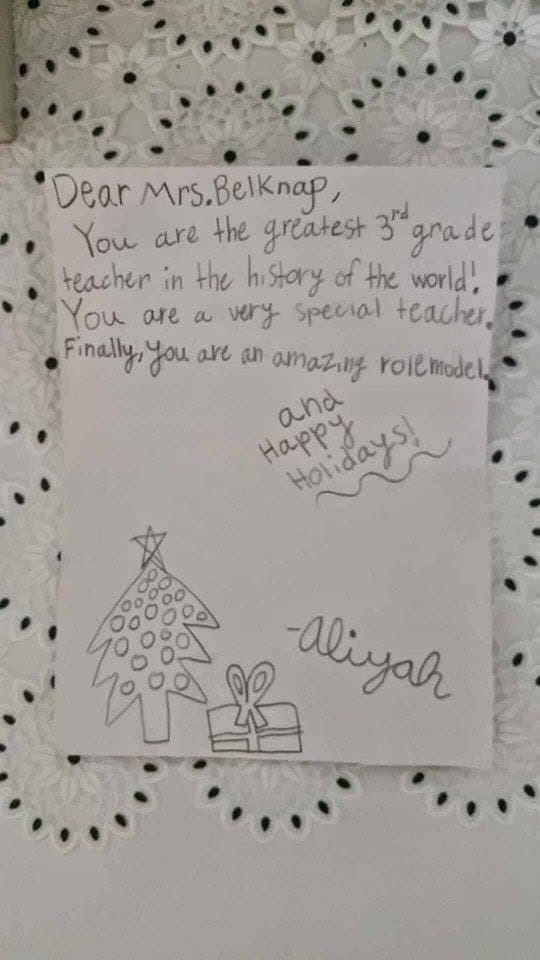 Dear Mrs.Belknap,
You are the greatest 3rd grade
teacher in the history of the world!
You are a very special teacher.
Finally, you are an amazing rolemodel.
and
Happy
Holidays!
-Aliyah